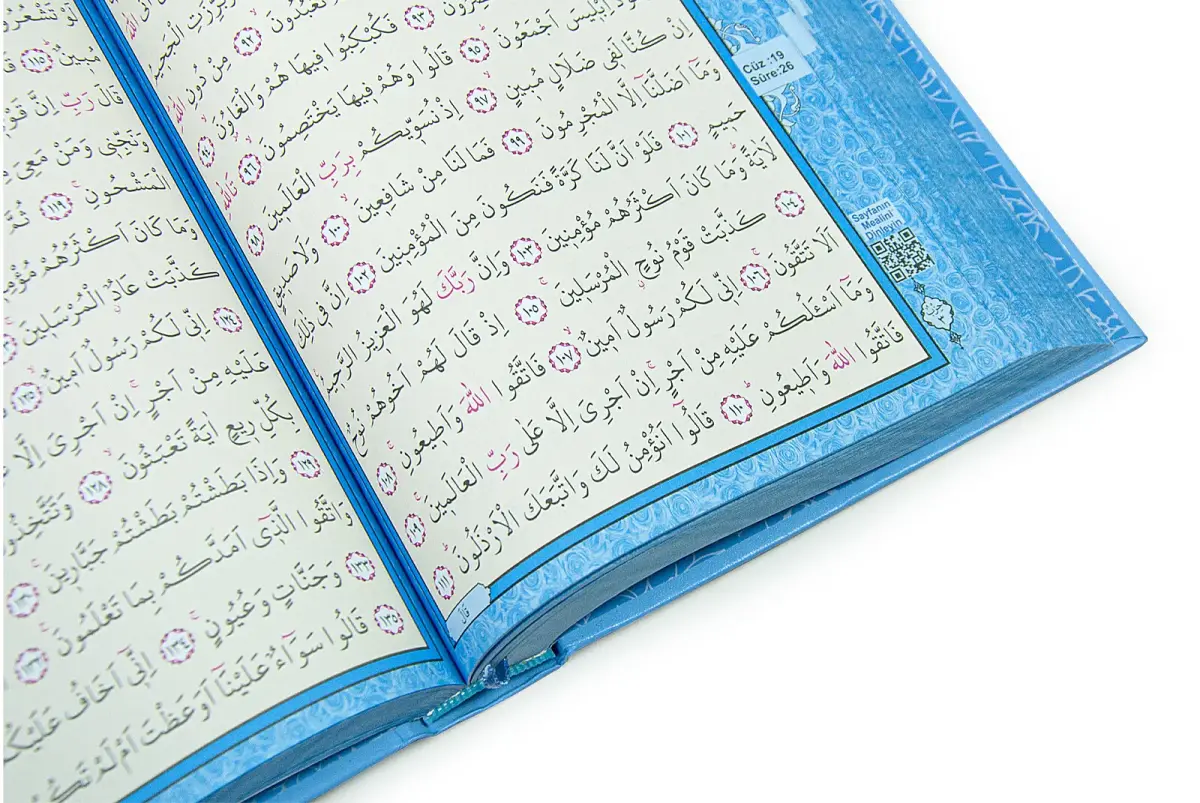 Cüz :19
Sûre:26
تَعْبُدُونَ ﴿٩٢﴾ مِنْ دُونِ اللّٰهِ
﴿٩٣﴾ فَكُبْكِبُوا فٖيهَا هُمْ وَالْغَاوُنَ ﴿٩٤﴾
اِبْلٖيسَ اَجْمَعُونَ ﴿٩٥﴾ قَالُوا وَهُمْ فٖيهَا يَخْتَصِمُونَ ﴿٩٦﴾ تَاللّٰهِ
اِنْ كُنَّا لَفٖى ضَلَالٍ مُبٖينٍ ﴿٩٧﴾ اِذْ نُسَوّٖيكُمْ بِرَبِّ الْعَالَمٖينَ ﴿٩٨﴾
وَمَٓا اَضَلَّنَٓا اِلَّا الْمُجْرِمُونَ ﴿٩٩﴾ فَمَا لَنَا مِنْ شَافِعٖينَ ﴿١٠٠﴾ وَلَا صَدٖيقٍ
حَمٖيمٍ ﴿١٠١﴾ فَلَوْ اَنَّ لَنَا كَرَّةً فَنَكُونَ مِنَ الْمُؤْمِنٖينَ ﴿١٠٢﴾ اِنَّ فٖى ذٰلِكَ
لَاٰيَةً وَمَا كَانَ اَكْثَرُهُمْ مُؤْمِنٖينَ ﴿١٠٣﴾ وَاِنَّ رَبَّكَ لَهُوَ الْعَزٖيزُ الرَّحٖيمُ
﴿١٠٤﴾ كَذَّبَتْ قَوْمُ نُوحٍ الْمُرْسَلٖينَ ﴿١٠٥﴾ اِذْ قَالَ لَهُمْ اَخُوهُمْ نُوحٌ
اَلَا تَتَّقُونَ ﴿١٠٦﴾ اِنّٖى لَكُمْ رَسُولٌ اَمٖينٌ ﴿١٠٧﴾ فَاتَّقُوا اللّٰهَ وَاَطٖيعُونِ ﴿١٠٨﴾
وَمَٓا اَسْـَٔلُكُمْ عَلَيْهِ مِنْ اَجْرٍ اِنْ اَجْرِىَ اِلَّا عَلٰى رَبِّ الْعَالَمٖينَ ﴿١٠٩﴾
فَاتَّقُوا اللّٰهَ وَاَطٖيعُونِ ﴿١١٠﴾ قَالُٓوا اَنُؤْمِنُ لَكَ وَاتَّبَعَكَ الْاَرْذَلُونَ ﴿١١١﴾
قَالَ
Sayfanın
Mealini
Dinleyin
مُبٖينٌ ﴿١١٥﴾
قَالَ رَبِّ اِنَّ
وَنَجِّنٖى وَمَنْ مَعِىَ
الْمَشْحُونِ ﴿١١٩﴾ ثُمَّ
وَمَا كَانَ اَكْثَرُهُمْ
كَذَّبَتْ عَادٌ الْمُرْسَلٖينَ
﴿١٢٤﴾ اِنّٖى لَكُمْ رَسُولٌ اَمٖينٌ ﴿١٢٥﴾
عَلَيْهِ مِنْ اَجْرٍ اِنْ اَجْرِىَ اِلَّا
بِكُلِّ رٖيعٍ اٰيَةً تَعْبَثُونَ ﴿١٢٨﴾ وَتَتَّخِذُونَ
﴿١٢٩﴾ وَاِذَا بَطَشْتُمْ بَطَشْتُمْ جَبَّارٖينَ ﴿١٣٠﴾
وَاتَّقُوا الَّذٖٓى اَمَدَّكُمْ بِمَا تَعْلَمُونَ ﴿١٣٢﴾
﴿١٣٣﴾ وَجَنَّاتٍ وَعُيُونٍ ﴿١٣٤﴾ اِنّٖٓى اَخَافُ عَلَيْكُمْ
﴿١٣٥﴾ قَالُوا سَوَٓاءٌ عَلَيْنَٓا اَوَعَظْتَ اَمْ لَمْ تَكُنْ